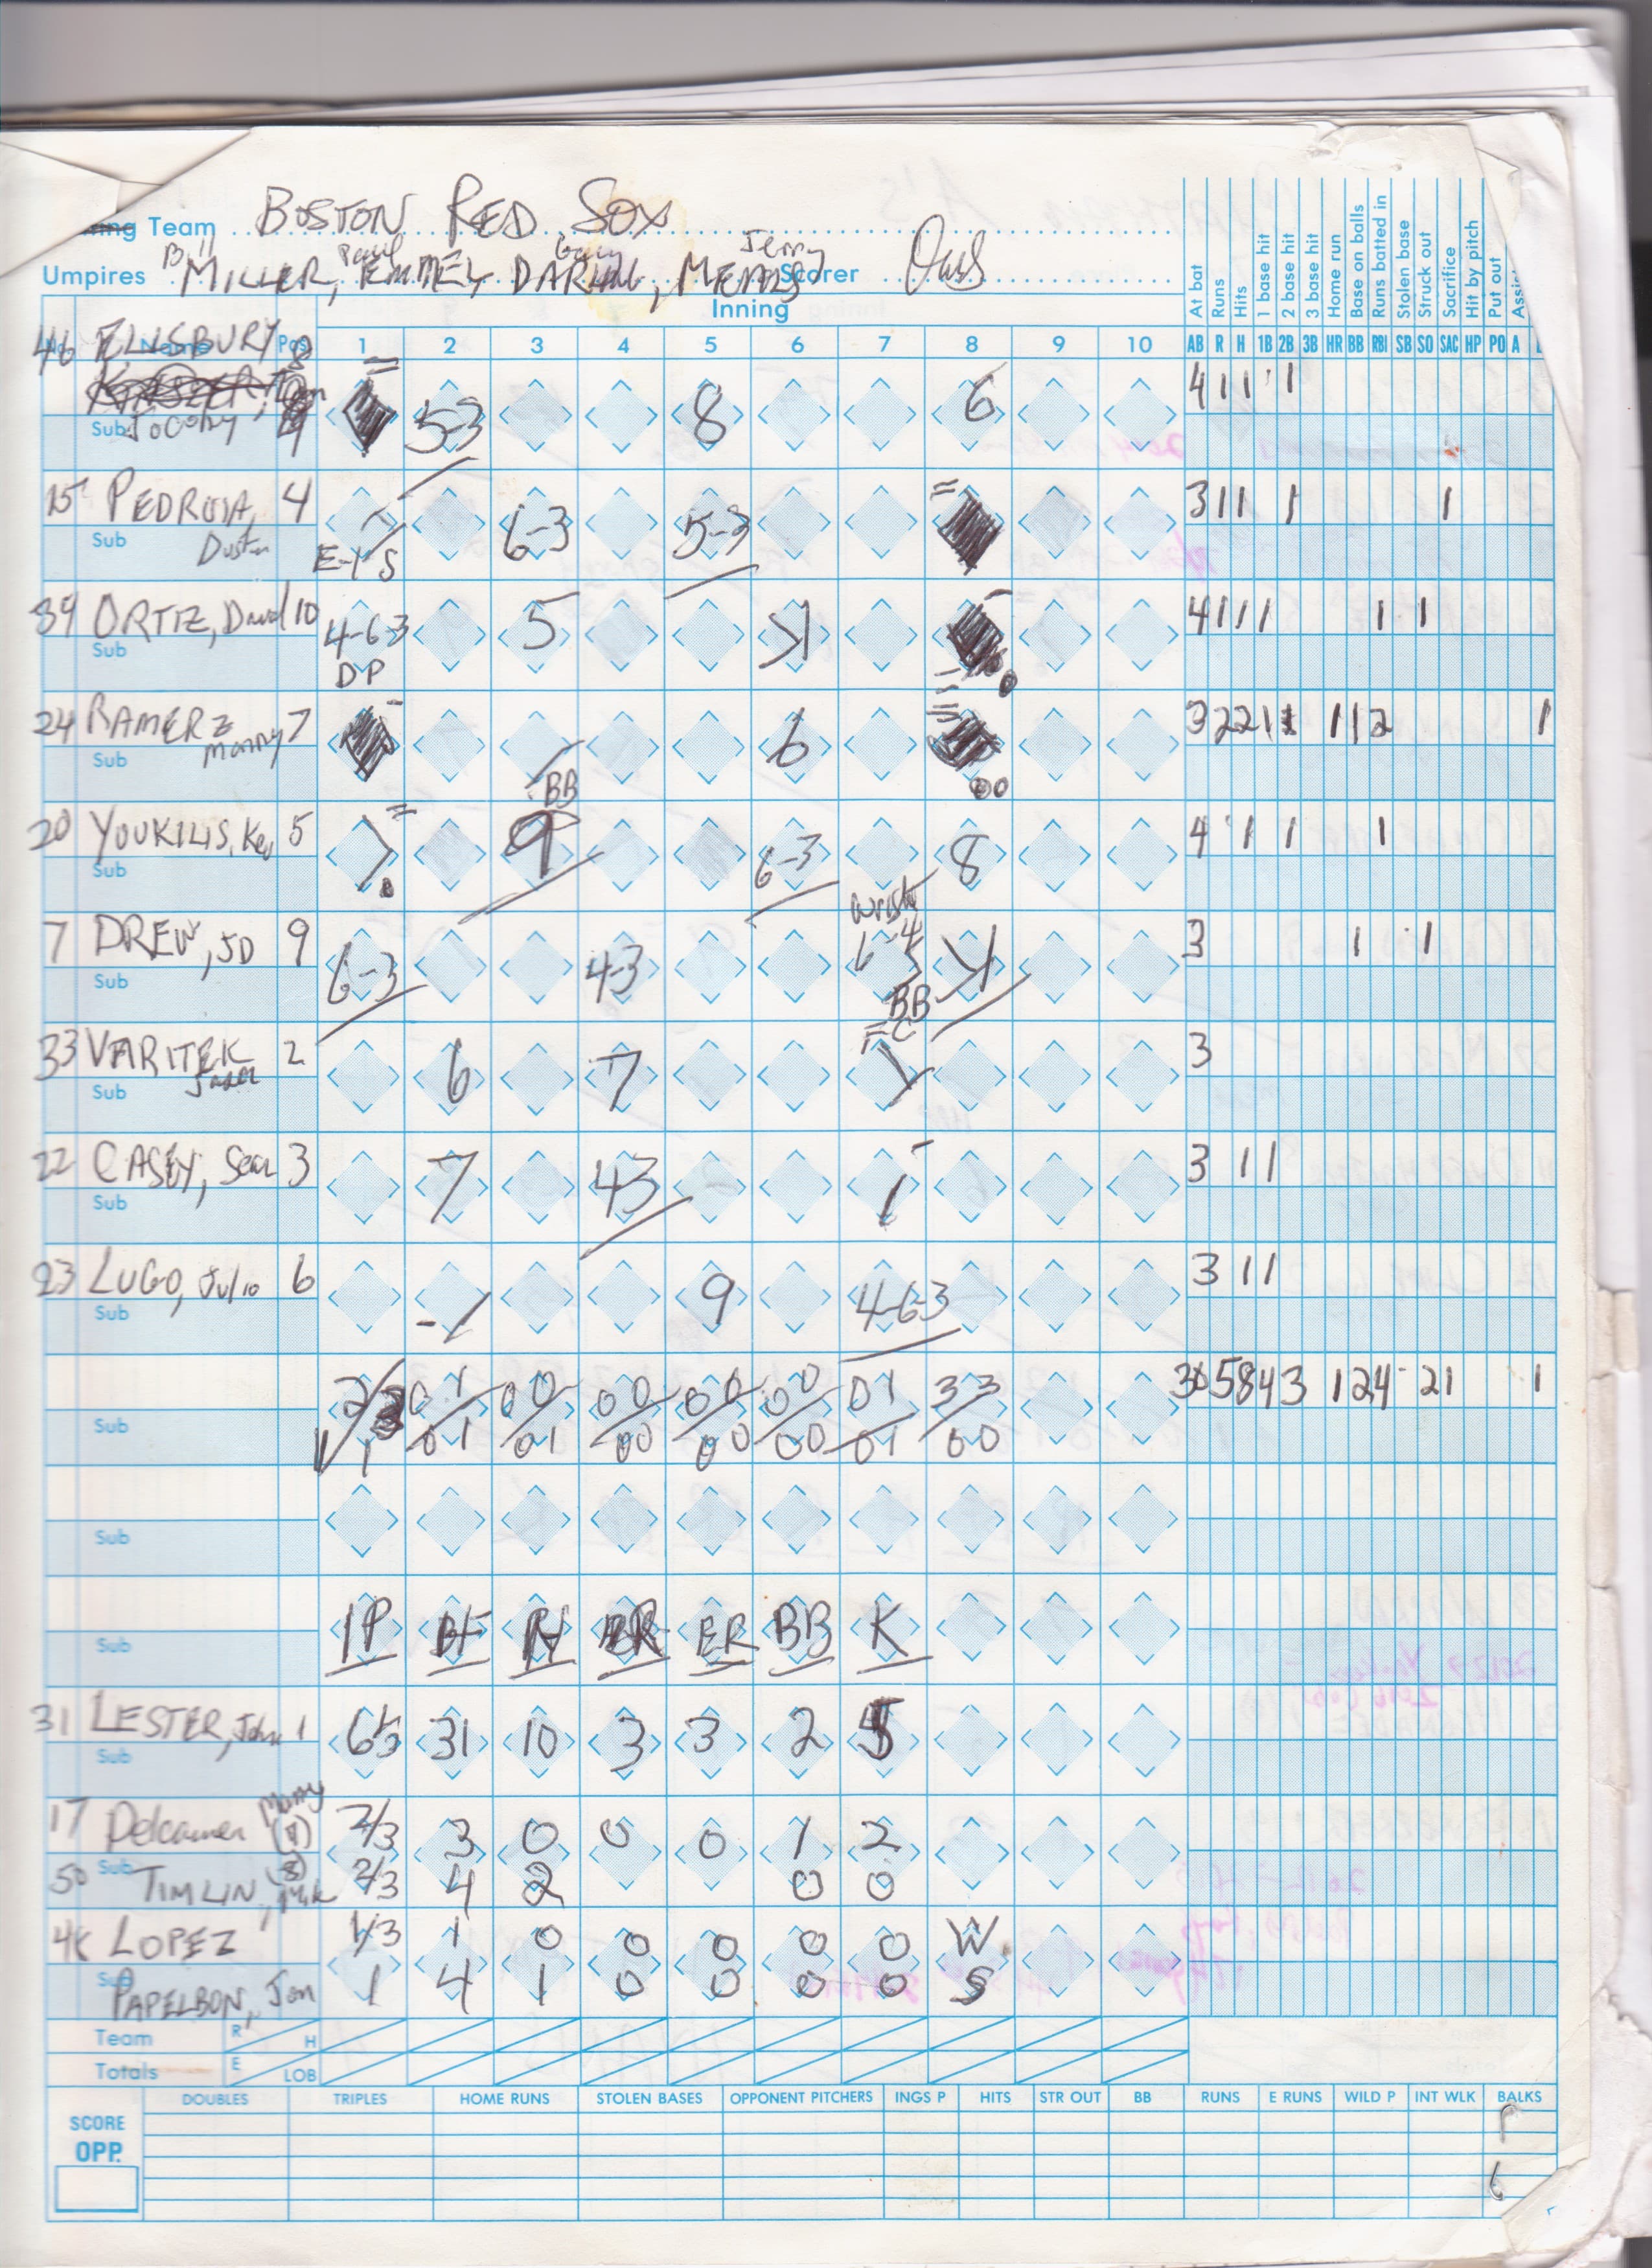 Team BOSTON RED SOX
Bill Paul Gary Jerry
Umpires MILLER, EMMEL, DARLING, MEALS Scorer
Inning
At bat Runs Hits 1 base hit 2 base hit 3 base hit Home run Base on balls Runs batted in Stolen base Struck out Sacrifice Hit by pitch Put out
1 2 3 4 5 6 7 8 9 10 AB R H 1B 2B 3B HR BB RBI SB SO SAC HP PO A
46 ELLSBURY 8
Sub Jocoby
5-3 8 6
4 1 1 1
15 PEDROIA, 4
Sub Dustin
E-1 S 6-3 5-3
3 1 1 1 1
34 ORTIZ, David 10
Sub
4-6-3 DP 5 K
4 1 1 1 1 1
24 RAMERZ 7
Sub Manny
BB 6
3 2 2 1 1 1 1 2 1
20 YOUKILIS, Kev 5
Sub
9 6-3 8
4 1 1 1
7 DREW, JD 9
Sub
6-3 4-3 BB K
3 1 1
33 VARITEK 2
Sub Jason
6 7 FC
3
22 CASEY, Sean 3
Sub
7 43
3 1 1
23 LUGO, Julio 6
Sub
9 4-6-3
3 1 1
Sub
30 5 8 4 3 1 2 4 2 1 1
Sub
IP BF H R ER BB K
Sub
31 LESTER, John 1
Sub
6 1/3 31 10 3 3 2 5
17 Delcarmen Manny
2/3 3 0 0 0 1 2
50 Sub TIMLIN, Mik
2/3 4 2 0 0
48 LOPEZ
1/3 1 0 0 0 0 0 W
Sub
PAPELBON, Jon
1 4 1 0 0 0 0 S
Team R H
Totals E LOB
DOUBLES TRIPLES HOME RUNS STOLEN BASES OPPONENT PITCHERS INGS P HITS STR OUT BB RUNS E RUNS WILD P INT WLK BALKS
SCORE
OPP.